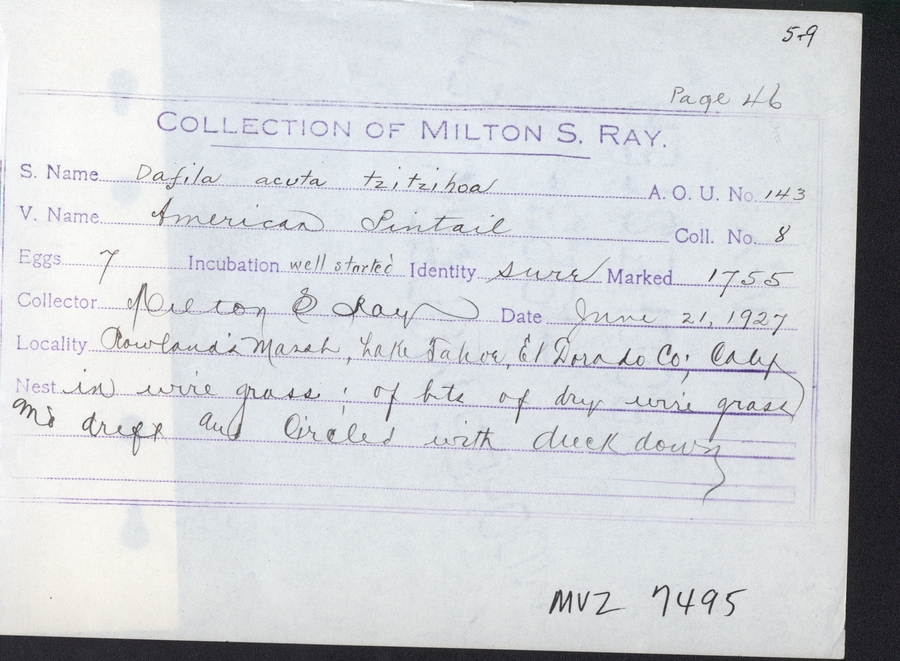 5-9
Page 46
COLLECTION OF MILTON S. RAY.
S. Name Dafila acuta tzitzihoa A. O. U. No. 143
V. Name American Pintail Coll. No. 8
Eggs 7 Incubation well started Identity sure Marked 1755
Collector Milton S Ray Date June 21, 1927
Locality Rowland's Marsh, Lake Tahoe, El Dorado Co; Calif
Nest in wire grass; of bits of dry wire grass
drift and circled with duck down
MVZ 7495